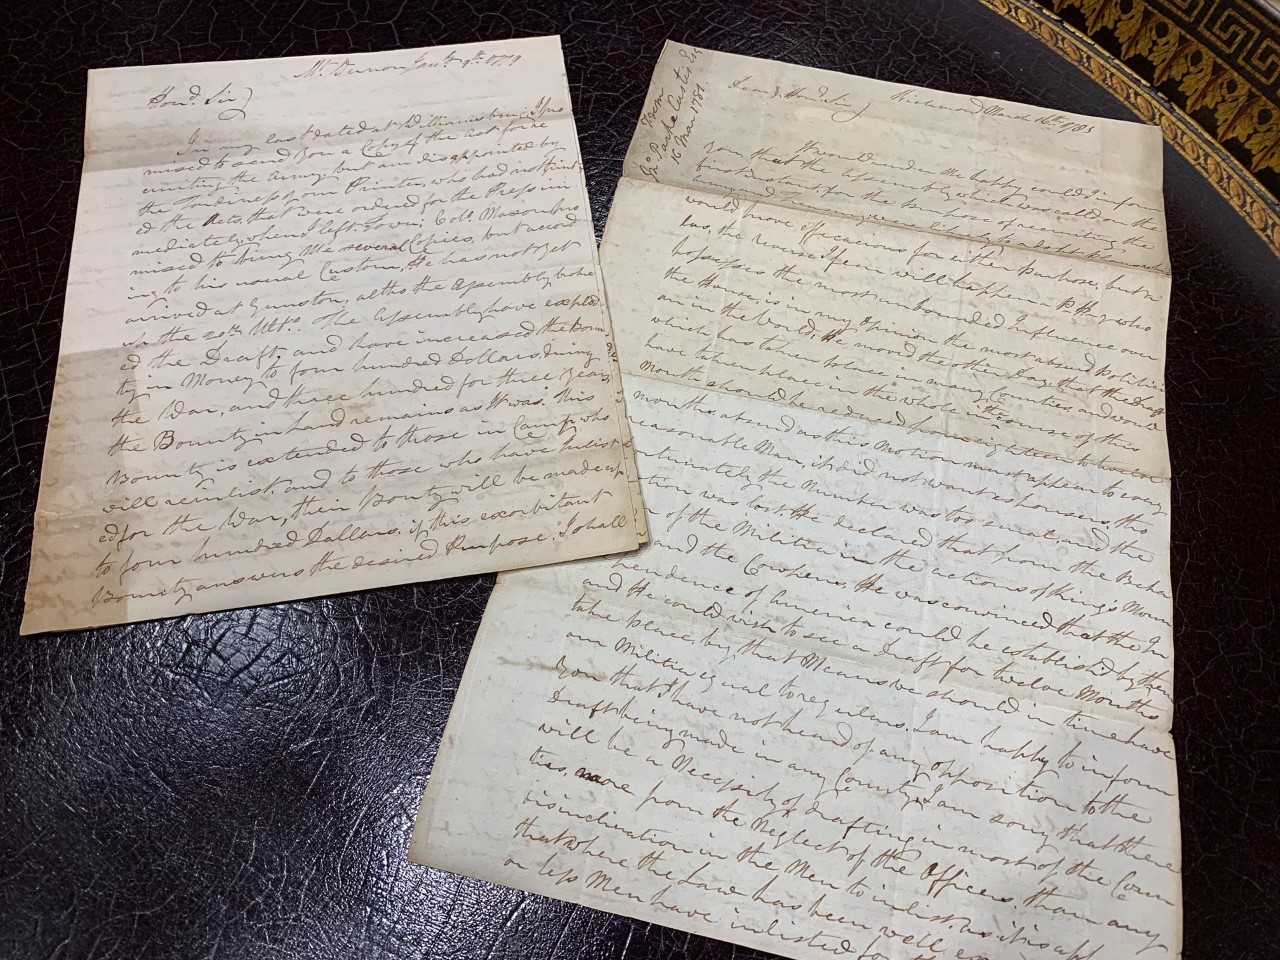 Mt. Vernon Jany. 9th. 1779
Hond. Sir
In my last dated at Williamsburg I pro
mised to send you a Copy of the act for re
cruiting the Army, but am disappointed by
the Tardiness of our Printer, who had not print
ed the Acts, that were ordered for the Press im
mediately, when I left Town. Colo. Mason pro
mised to bring Me several Copies, but accord
ing to his usual Custom, He has not yet
arrived at Gunston, altho the Assembly broke
up the 20th. Ulto. The Assembly have explod
ed the Draft, and have increased the Boun
ty in Money to four hundred Dollars during
the War, and three hundred for three years,
the Bounty in Land remains as it was. this
Bounty is extended to those in Camp, who
will reinlist. and to those who have inlist
ed for the War, their Bounty will be made up
to four hundred Dollars. if this exorbitant
Bounty answers the desired Purpose. I shall
From
Jno. Parke Custis Esqr
16 Mar 1781
Richmond March 16th. 1781
Hond. Sir
I would be happy could I inform
you that the Assembly which was call'd on the
first Instant for the purpose of recruiting the
would prove efficacious for either purpose, but a
las, the reverse I fear will happen. P. Henry who
possesses the most unbounded Influence over
the House, is in my Opinion the most absurd Politici
an in the World, He moved the other day that the Draft
which has taken place in many Counties, and would
have taken place in the whole in the course of this
Month should be reduced from eighteen to twelve
months. absurd as this Motion must appear to every
reasonable Man, it did not want espousers, tho
fortunately the number was too small and the
Motion was lost. He declared that from the Beha
of the Militia in the actions of King's Moun
and the Cowpens, He was convinced that the In
pendence of America could be established by them
and He could wish to see a Draft for twelve Months
take place, by that Means we should in time have
our Militia equal to regulars. I am happy to inform
you that I have not heard of any opposition to the
Draft being made in any County. I am sorry that there
will be a Necessity of Drafting in most of the Coun
ties, more from the Neglect of the Officers. than any
disinclination in the Men to inlist. as it is app
that where the Law has been well ex
or less Men have inlisted for the